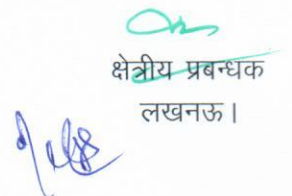 क्षेत्रीय प्रबन्धक
लखनऊ।